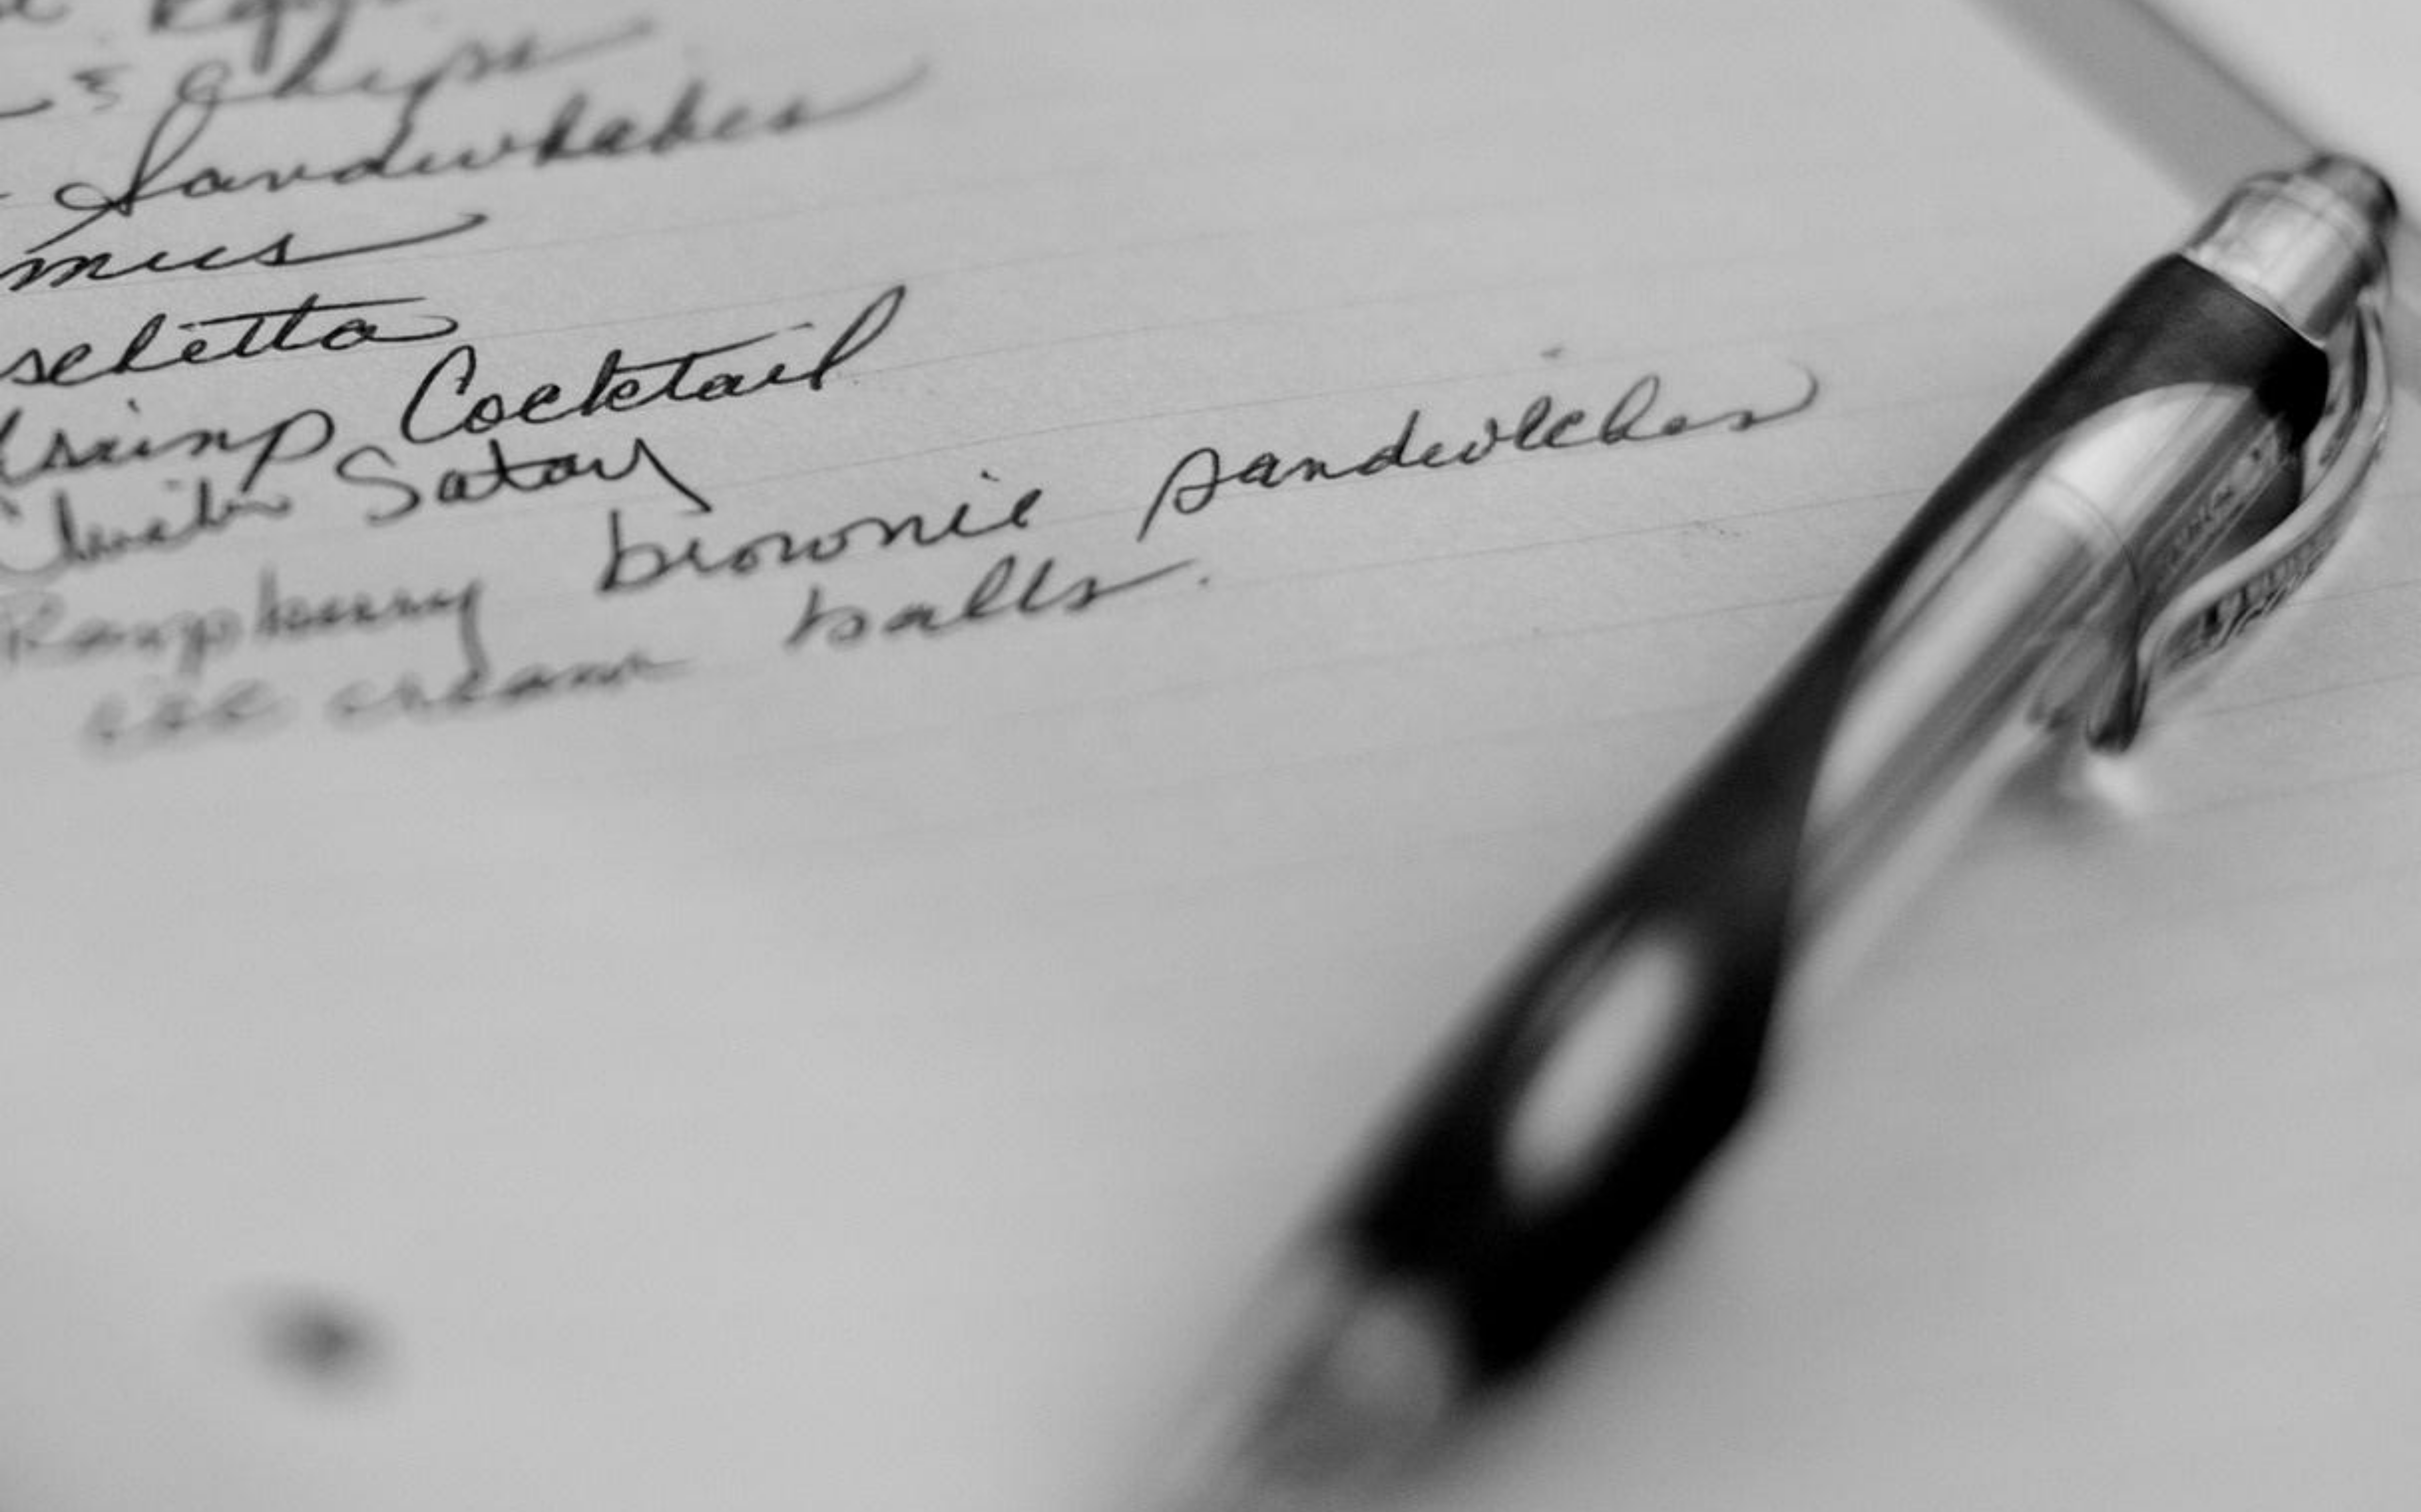 & Chips
Sandwhahes
mus
schetta
hrimp Cocktail
Satay
Raspberry brownie sandwiches
ice cream balls.